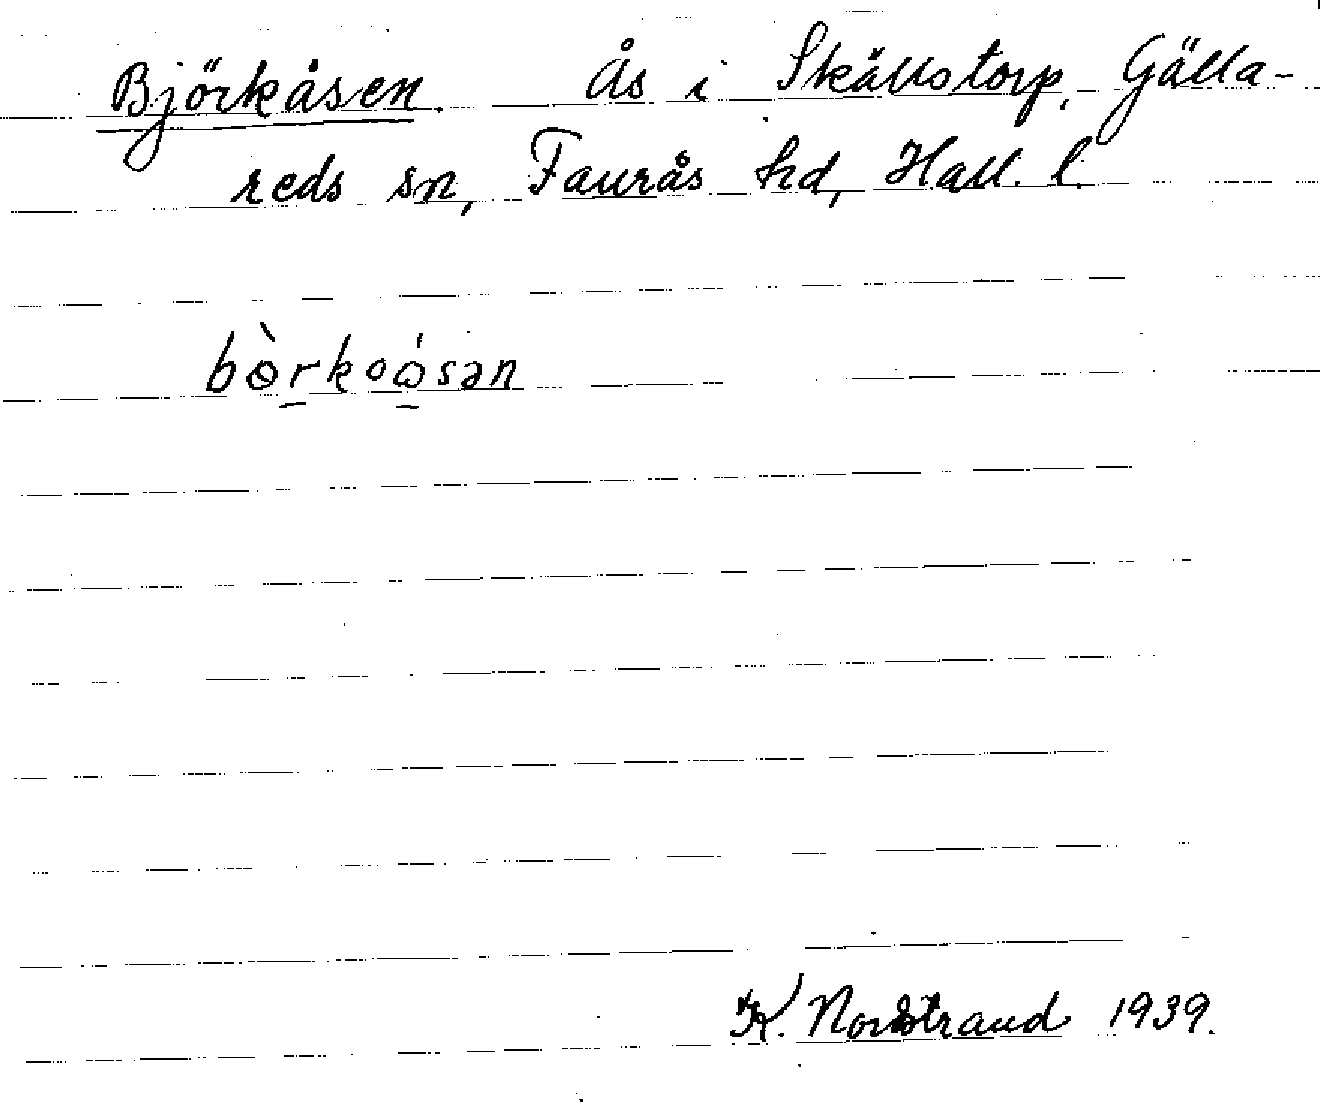 Björkåsen. Ås i Skällstorp, Gälla-
reds sn, Faurås hd, Hall. l.
bɵ̀rkoɷ́sən
K. Nordstrand 1939.